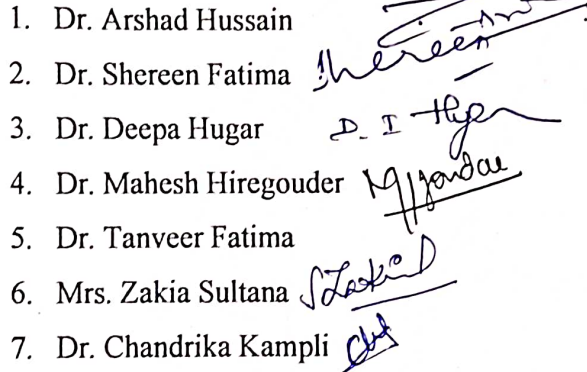 1. Dr. Arshad Hussain
2. Dr. Shereen Fatima Shereen
3. Dr. Deepa Hugar D. I
4. Dr. Mahesh Hiregouder
5. Dr. Tanveer Fatima
6. Mrs. Zakia Sultana
7. Dr. Chandrika Kampli